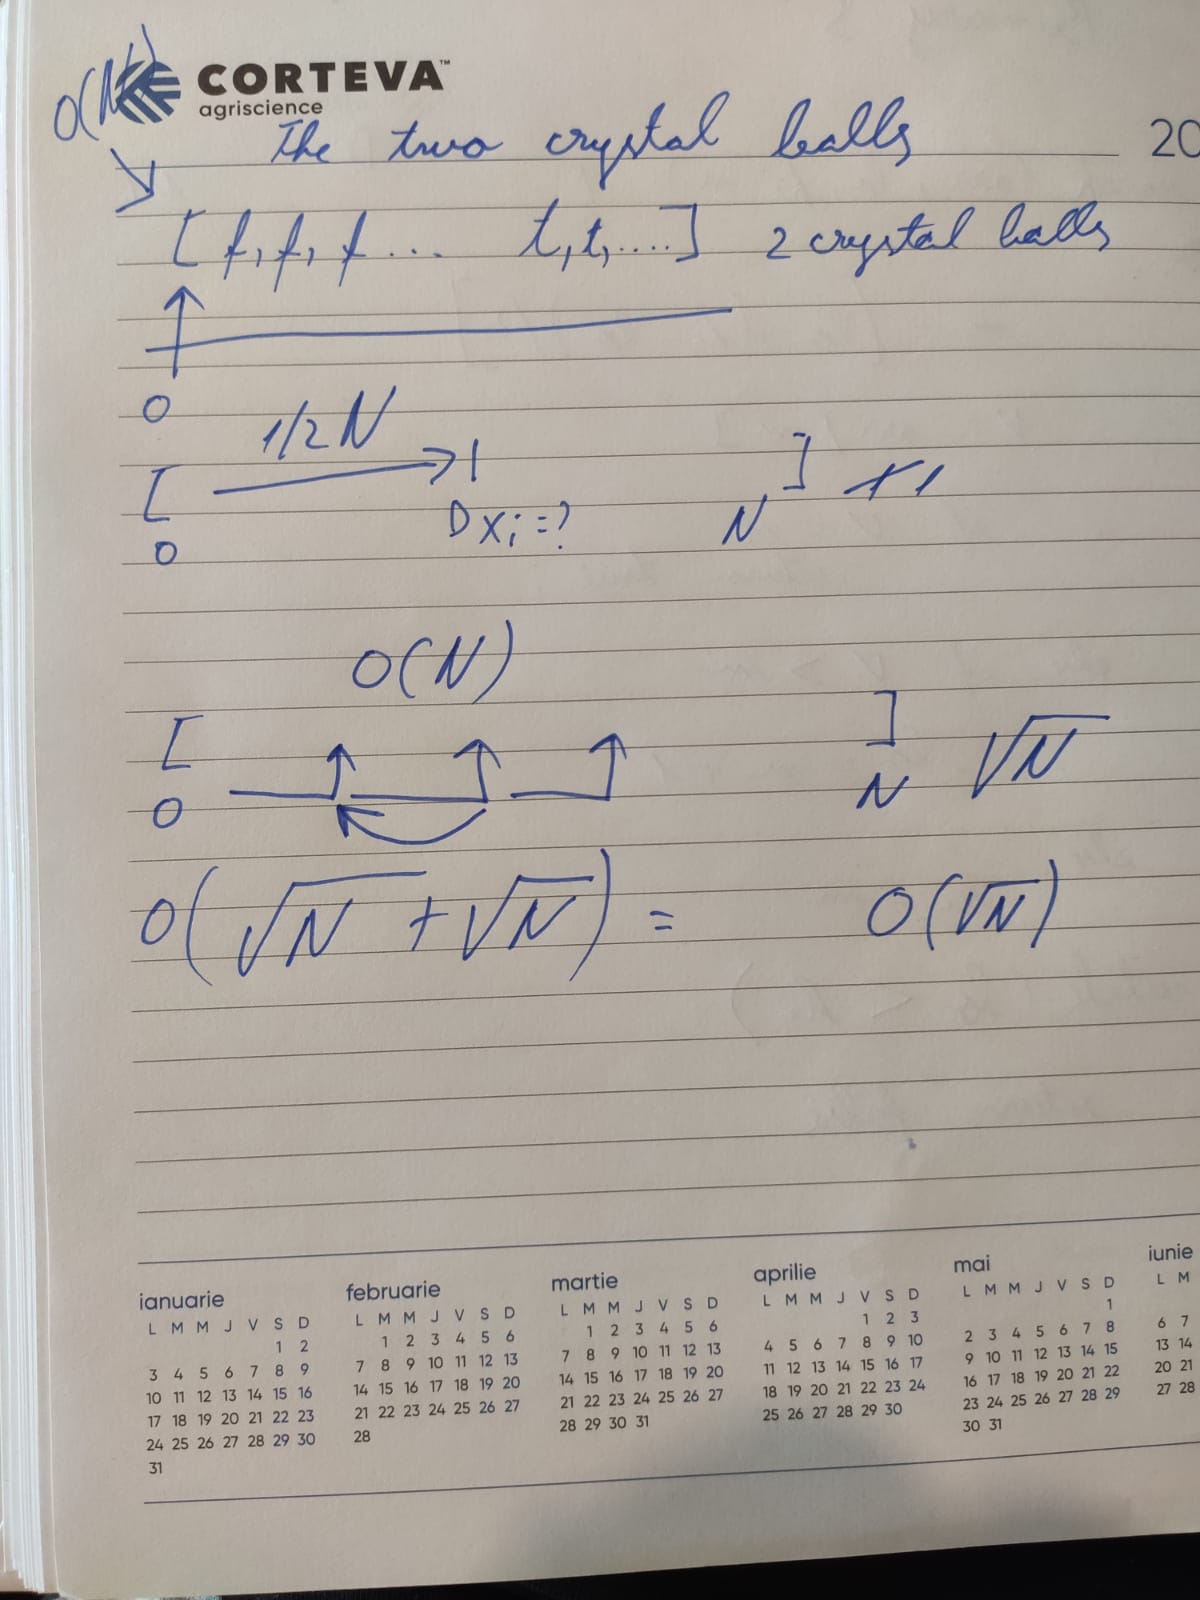 O(N)
CORTEVA™
agriscience
The two crystal balls
20
[ f, f, f ... t, t, .... ] 2 crystal balls
0
1/2 N
[ ]
0 xi = ? N
O(N)
[ ] √N
0 N
O(√N + √N) = O(√N)
ianuarie februarie martie aprilie mai iunie
ianuarie
L M M J V S D
1 2
3 4 5 6 7 8 9
10 11 12 13 14 15 16
17 18 19 20 21 22 23
24 25 26 27 28 29 30
31
februarie
L M M J V S D
1 2 3 4 5 6
7 8 9 10 11 12 13
14 15 16 17 18 19 20
21 22 23 24 25 26 27
28
martie
L M M J V S D
1 2 3 4 5 6
7 8 9 10 11 12 13
14 15 16 17 18 19 20
21 22 23 24 25 26 27
28 29 30 31
aprilie
L M M J V S D
1 2 3
4 5 6 7 8 9 10
11 12 13 14 15 16 17
18 19 20 21 22 23 24
25 26 27 28 29 30
mai
L M M J V S D
1
2 3 4 5 6 7 8
9 10 11 12 13 14 15
16 17 18 19 20 21 22
23 24 25 26 27 28 29
30 31
iunie
L M
6 7
13 14
20 21
27 28